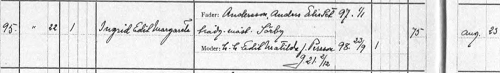 Fader: Andersson, Anders Elis 97. 1/1
95. " 22 1 Ingrid Edit Margareta Sörby 75 aug. 23
Moder: Edit Matilda f. Persson 98 23/9 1
g 21 /12